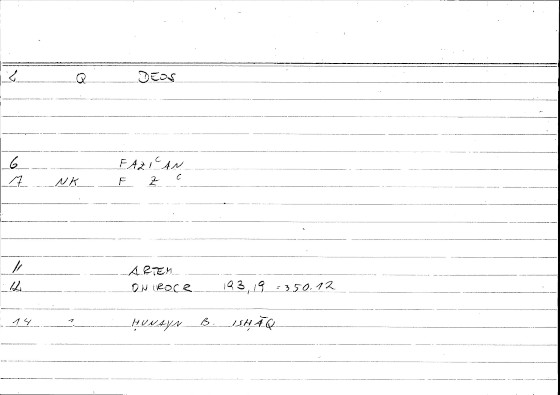 2 Q DEOS
6 FAZIʿAN
7 NK F Z ʿ
11 ARTEM
12 ONIROCR 193,19 = 350.12
14 " ḤUNAYN B. ISḤĀQ